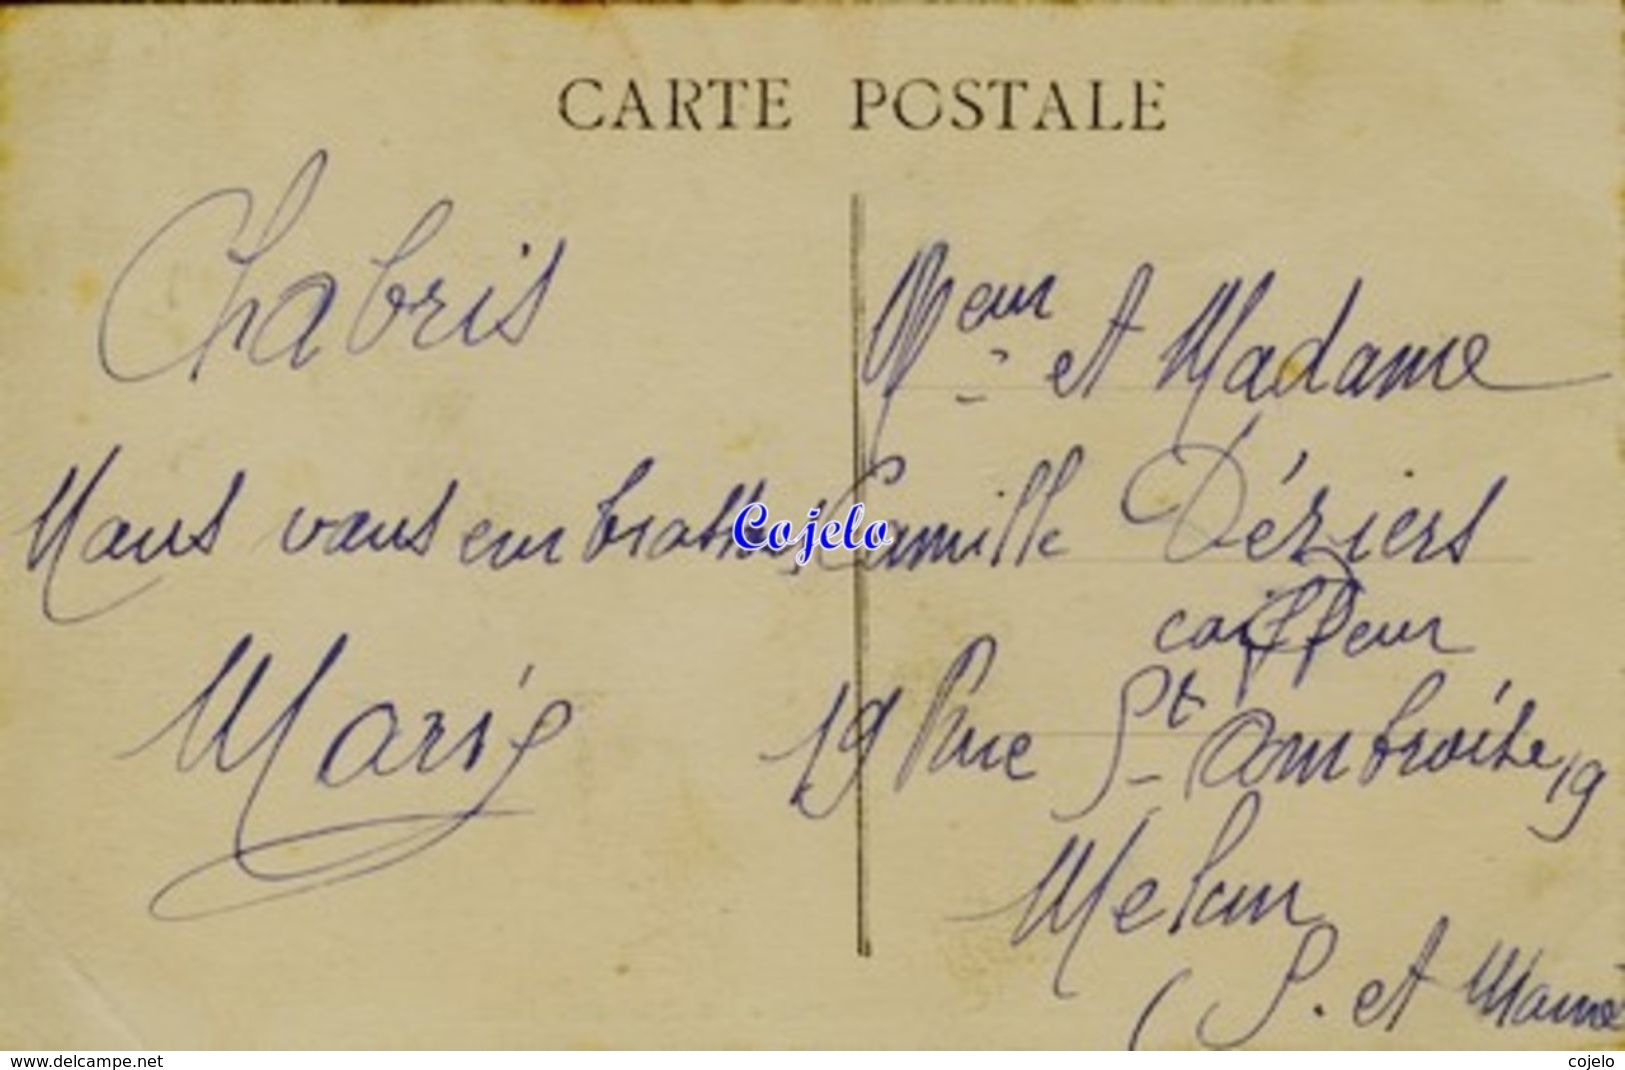 CARTE POSTALE
Chabris
Nous vous embrassons
Marie
Meur et Madame
Camille Déziers
coiffeur
19 Rue St Ambroise, 19
Melun
(S. et Marne
Cojelo
www.delcampe.net
cojelo